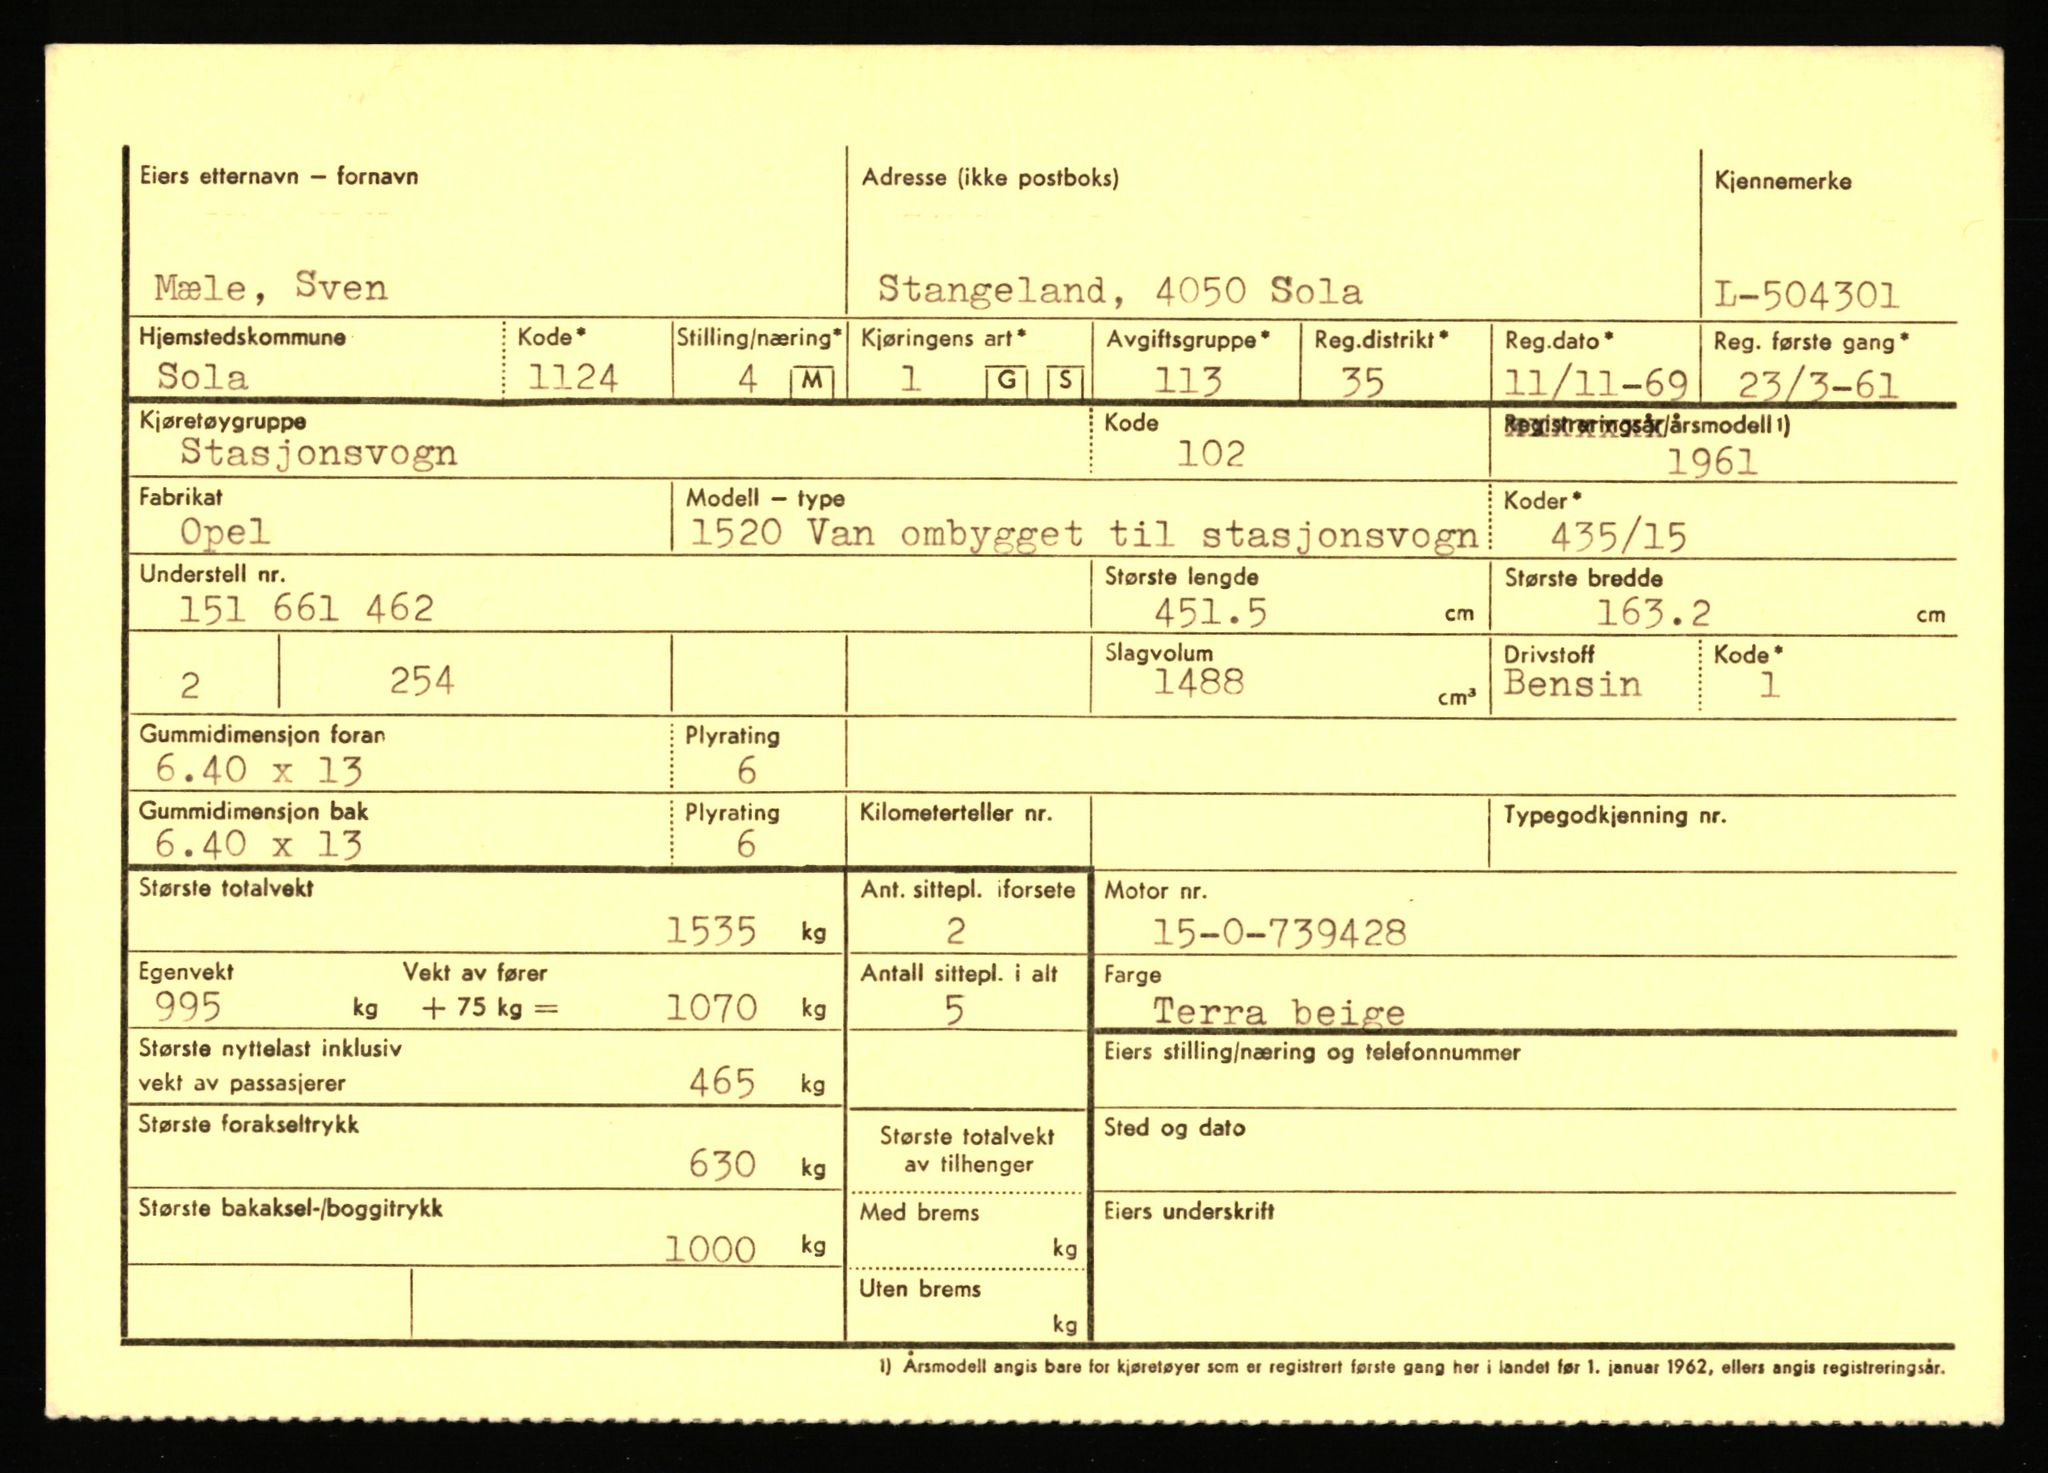 Eiers etternavn – fornavn
Adresse (ikke postboks)
Kjennemerke
Mæle, Sven
Stangeland, 4050 Sola
L-504301
Hjemstedskommune
Kode*
Stilling/næring*
Kjøringens art*
Avgiftsgruppe*
Reg.distrikt*
Reg.dato*
Reg. første gang*
Sola
1124
4 M
1 G S
113
35
11/11-69
23/3-61
Kjøretøygruppe
Kode
Registreringsår/årsmodell 1)
Stasjonsvogn
102
1961
Fabrikat
Modell – type
Koder*
Opel
1520 Van ombygget til stasjonsvogn
435/15
Understell nr.
Største lengde
Største bredde
151 661 462
451.5 cm
163.2 cm
2
254
Slagvolum
Drivstoff
Kode*
1488 cm³
Bensin
1
Gummidimensjon foran
Plyrating
6.40 x 13
6
Gummidimensjon bak
Plyrating
Kilometerteller nr.
Typegodkjenning nr.
6.40 x 13
6
Største totalvekt
Ant. sittepl. i forsete
Motor nr.
1535 kg
2
15-0-739428
Egenvekt
Vekt av fører
Antall sittepl. i alt
Farge
995 kg + 75 kg = 1070 kg
5
Terra beige
Største nyttelast inklusiv
vekt av passasjerer
465 kg
Eiers stilling/næring og telefonnummer
Største forakseltrykk
630 kg
Største totalvekt
av tilhenger
Sted og dato
Største bakaksel-/boggitrykk
1000 kg
Med brems
kg
Eiers underskrift
Uten brems
kg
1) Årsmodell angis bare for kjøretøyer som er registrert første gang her i landet før 1. januar 1962, ellers angis registreringsår.